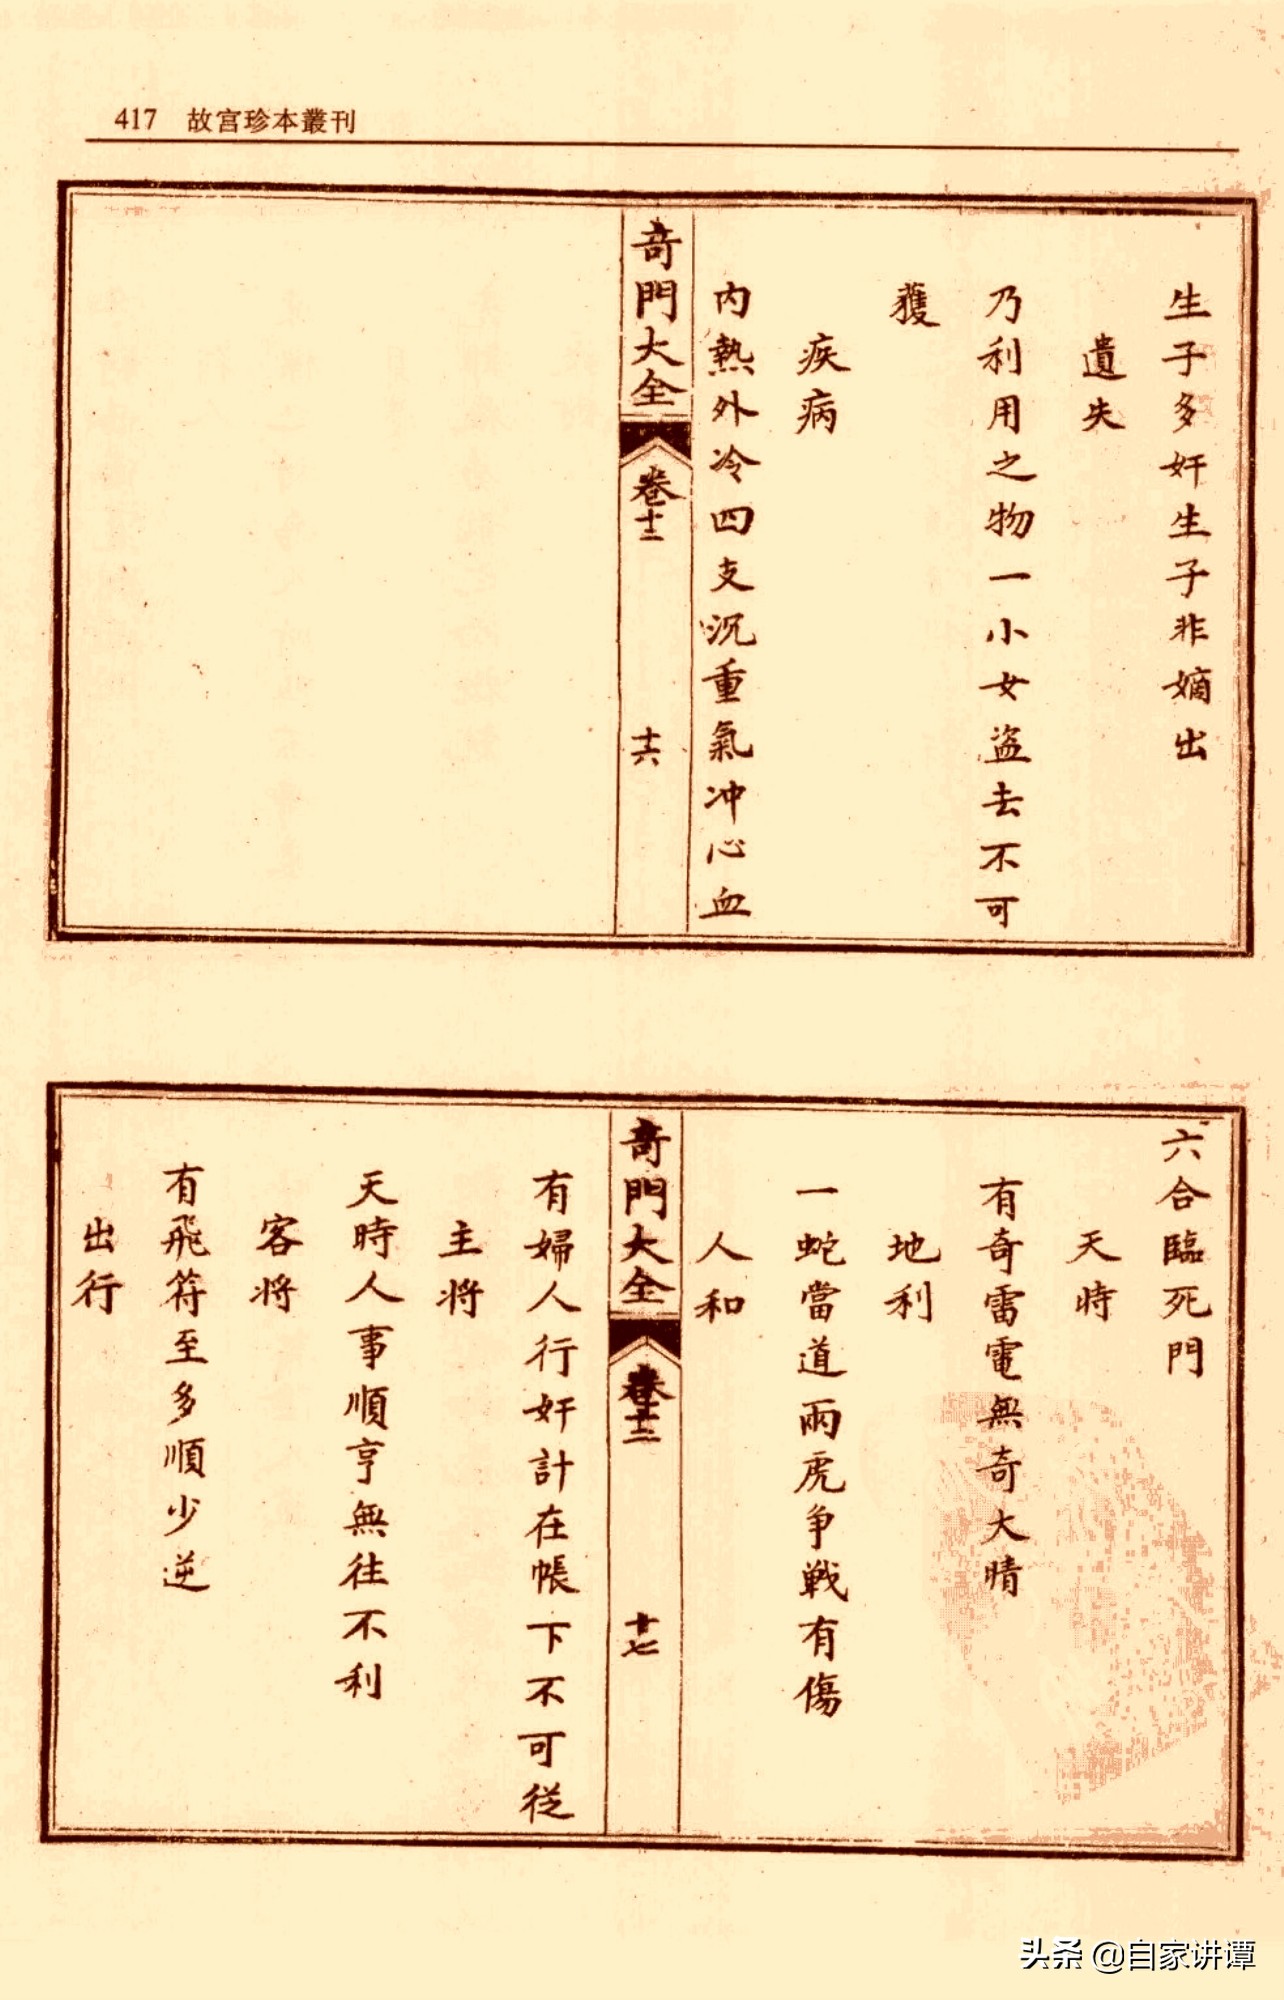 417 故宫珍本叢刊
生子多奸生子非嫡出
遺失
乃利用之物一小女盜去不可
獲
疾病
内熱外冷四支沉重氣冲心血
奇門大全 卷十二 十六
六合臨死門
天時
有奇雷電無奇大晴
地利
一蛇當道兩虎争戰有傷
人和
奇門大全 卷十二 十七
有婦人行奸計在帳下不可從
主将
天時人事順亨無往不利
客将
有飛符至多順少逆
出行
头条 @自家讲谭